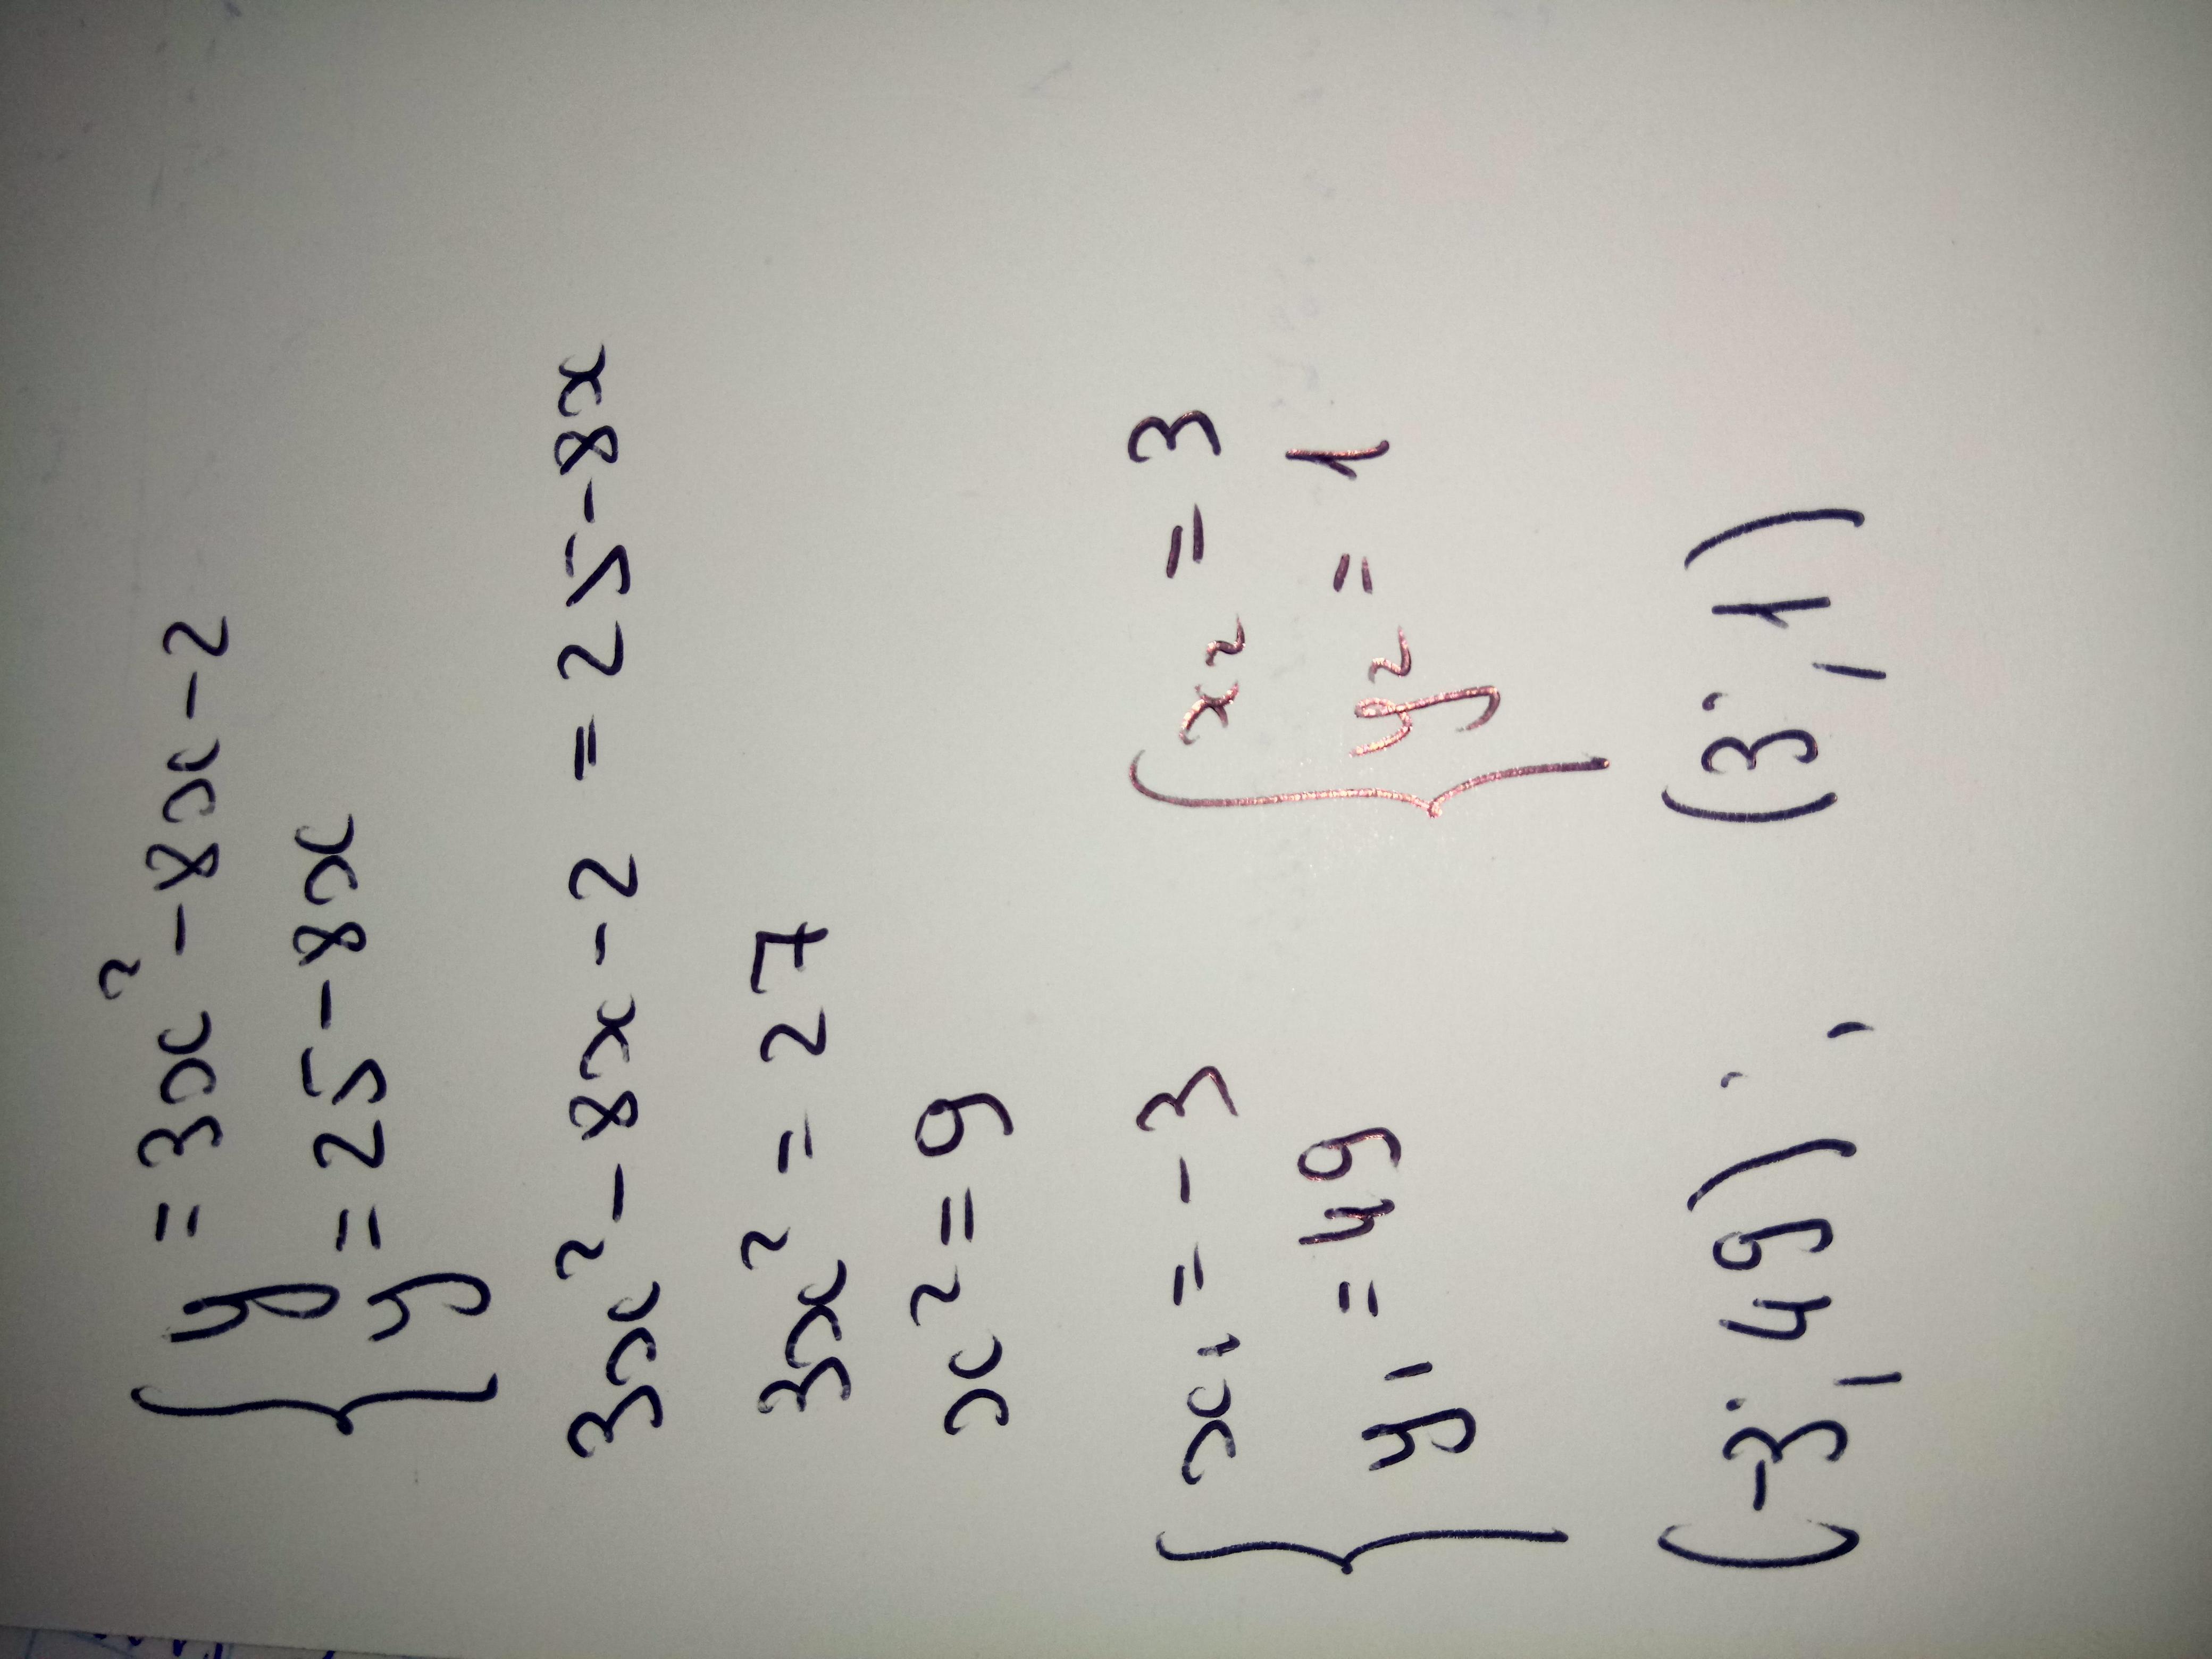 { y = 3x² - 8x - 2
y = 25 - 8x
3x² - 8x - 2 = 25 - 8x
3x² = 27
x² = 9
{ x₁ = -3 { x² = 3
y₁ = 49 y² = 1
(-3; 49); (3; 1)